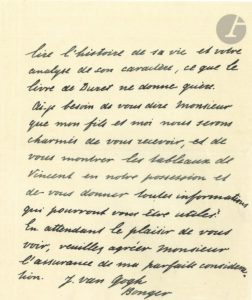 ADER
Paris
lire l'histoire de sa vie et votre
analyse de son caractère, ce que le
livre de Duret ne donne guère.
Ai-je besoin de vous dire Monsieur
que mon fils et moi nous serons
charmés de vous recevoir, et de
vous montrer les tableaux de
Vincent en notre possession et
de vous donner toutes informations
qui pourront vous être utiles.
En attendant le plaisir de vous
voir, veuillez agréer Monsieur
l'assurance de ma parfaite considéra-
tion. J. van Gogh
Bonger